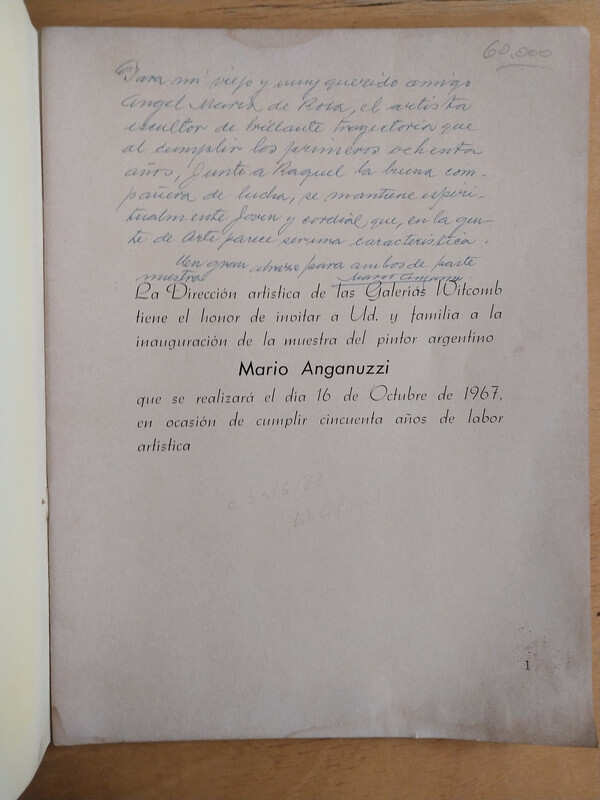 60.000
Para mi viejo y muy querido amigo
Angel María de Rosa, el artista
escultor de brillante trayectoria que
al cumplir los primeros ochenta
años, junto a Raquel la buena com-
pañera de lucha, se mantiene espiri-
tualmente joven y cordial que, en la gen-
te de Arte parece ser una caracteristica.
Un gran abrazo para ambos de parte
nuestra
La Dirección artistica de las Galerías Witcomb
tiene el honor de invitar a Ud. y familia a la
inauguración de la muestra del pintor argentino
Mario Anganuzzi
que se realizará el dia 16 de Octubre de 1967,
en ocasión de cumplir cincuenta años de labor
artistica
1